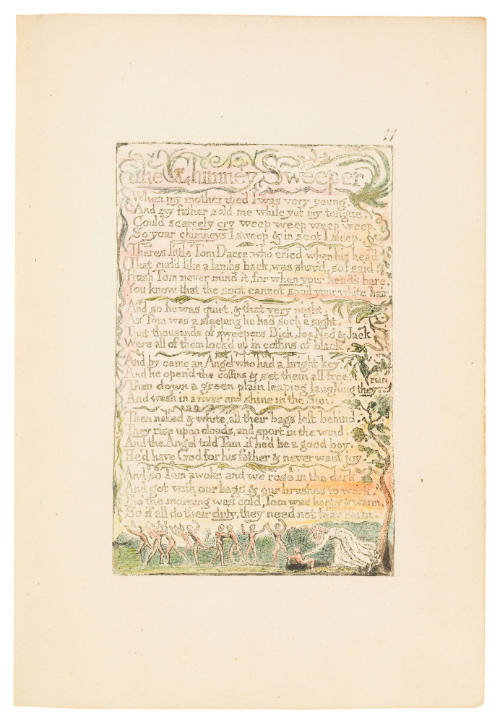 27
The Chimney Sweeper
When my mother died I was very young
And my father sold me while yet my tongue
Could scarcely cry weep weep weep weep
So your chimneys I sweep & in soot I sleep
Theres little Tom Dacre who cried when his head
That curld like a lambs back, was shav'd, so I said
Hush Tom never mind it, for when your head's bare
You know that the soot cannot spoil your white hair
And so he was quiet, & that very night
As Tom was a sleeping he had such a sight
That thousands of sweepers Dick, Joe, Ned & Jack
Were all of them lock'd up in coffins of black
And by came an Angel who had a bright key
And he open'd the coffins & set them all free
Then down a green plain leaping laughing they run
And wash in a river and shine in the Sun.
Then naked & white, all their bags left behind
They rise upon clouds, and sport in the wind
And the Angel told Tom if he'd be a good boy
He'd have God for his father & never want joy.
And so Tom awoke and we rose in the dark
And got with our bags & our brushes to work
Tho' the morning was cold, Tom was happy & warm
So if all do their duty, they need not fear harm